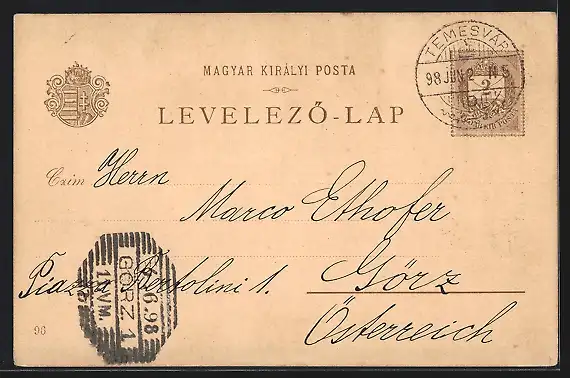 MAGYAR KIRÁLYI POSTA
LEVELEZŐ-LAP
TEMESVÁR
98 JUN 2
2
Czim Herrn
Marco Ethofer
Piazza Bertolini 1. Görz
Österreich
6.98
GÖRZ 1
1.VM.
96